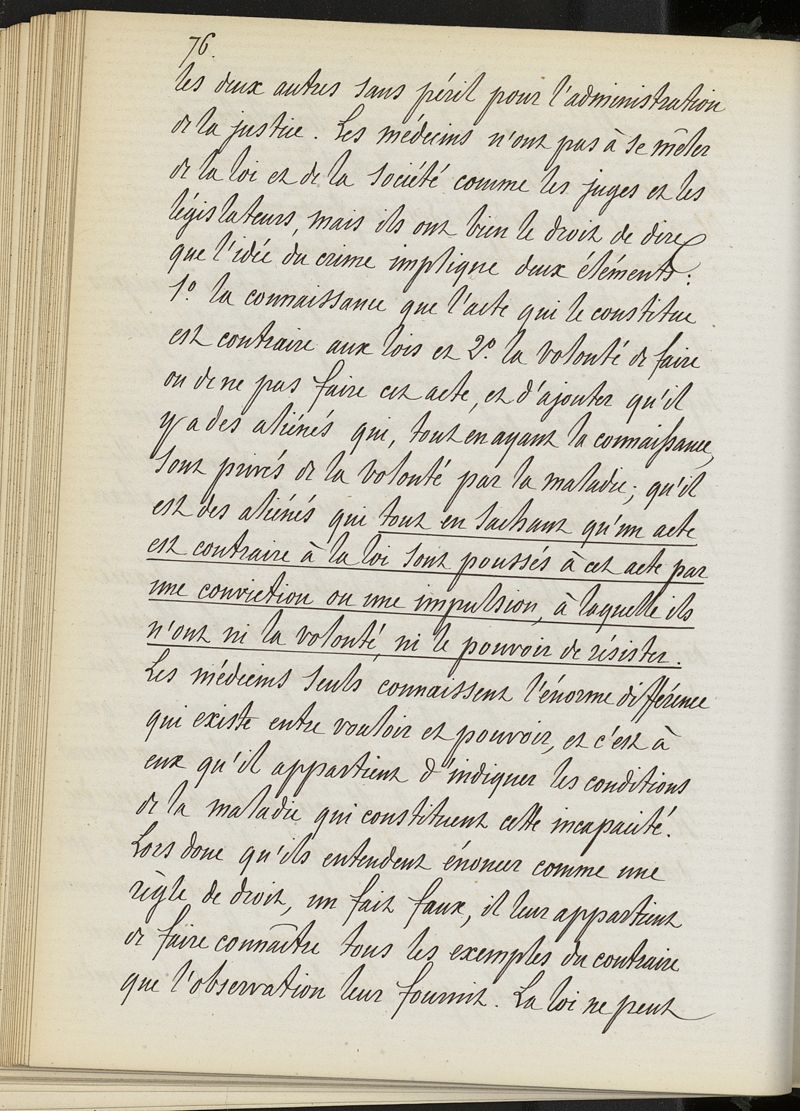 76.
les deux autres sans péril pour l'administration
de la justice. Les médecins n'ont pas à se mêler
de la loi et de la société comme les juges et les
législateurs, mais ils ont bien le droit de dire
que l'idée du crime implique deux éléments:
1º la connaissance que l'acte qui le constitue
est contraire aux lois et 2º la volonté de faire
ou de ne pas faire cet acte, et d'ajouter qu'il
y a des aliénés qui, tout en ayant la connaissance,
sont privés de la volonté par la maladie; qu'il
est des aliénés qui tout en sachant qu'un acte
est contraire à la loi sont poussés à cet acte par
une conviction ou une impulsion, à laquelle ils
n'ont ni la volonté, ni le pouvoir de résister.
Les médecins seuls connaissent l'énorme différence
qui existe entre vouloir et pouvoir, et c'est à
eux qu'il appartient d'indiquer les conditions
de la maladie qui constituent cette incapacité.
Lors donc qu'ils entendent énoncer comme une
règle de droit, un fait faux, il leur appartient
de faire connaître tous les exemples du contraire
que l'observation leur fournit. La loi ne peut